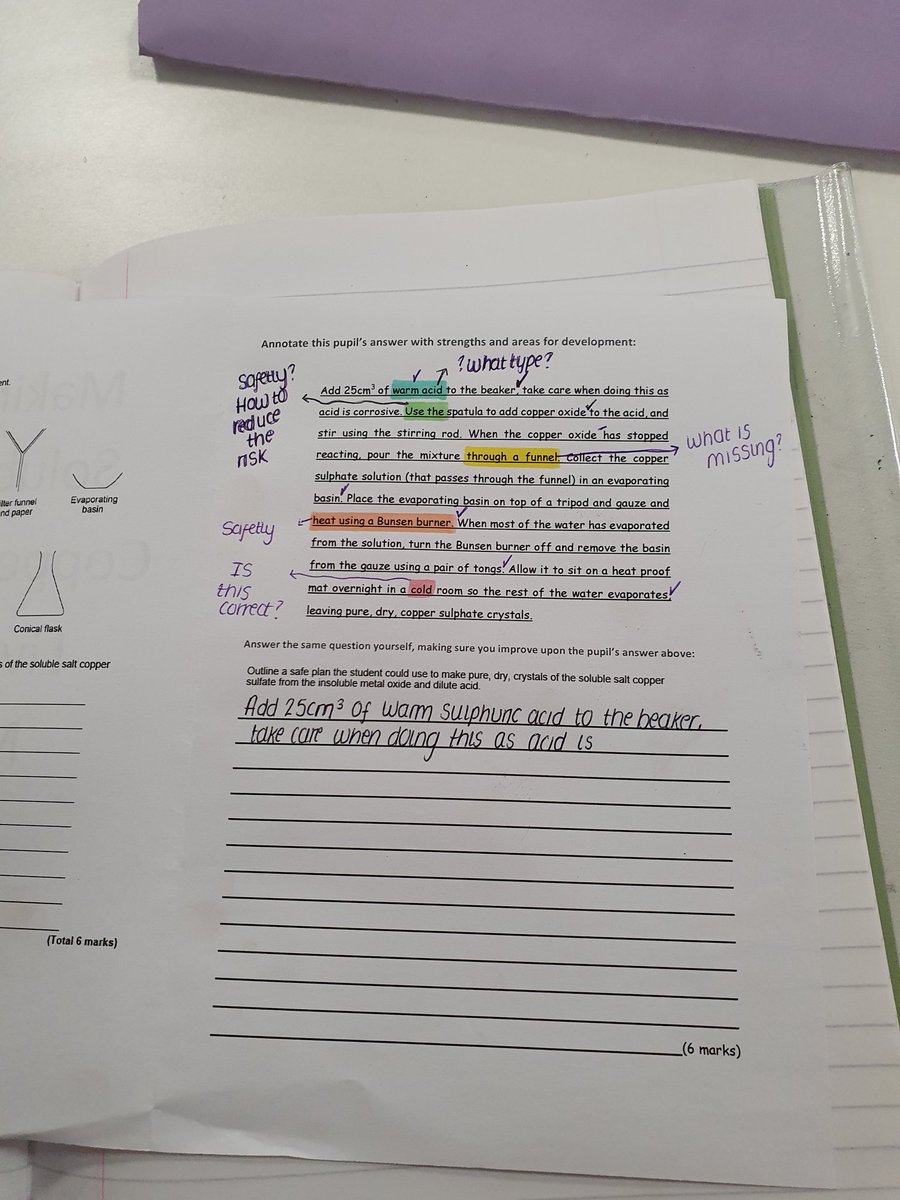 ent.
lter funnel
nd paper
Evaporating
basin
Conical flask
s of the soluble salt copper
(Total 6 marks)
Annotate this pupil's answer with strengths and areas for development:
? What type?
Safetly?
How to
reduce
the
risk
Add 25cm³ of warm acid to the beaker, take care when doing this as
acid is corrosive. Use the spatula to add copper oxide to the acid, and
stir using the stirring rod. When the copper oxide has stopped
reacting, pour the mixture through a funnel. Collect the copper
sulphate solution (that passes through the funnel) in an evaporating
basin. Place the evaporating basin on top of a tripod and gauze and
heat using a Bunsen burner. When most of the water has evaporated
from the solution, turn the Bunsen burner off and remove the basin
from the gauze using a pair of tongs. Allow it to sit on a heat proof
mat overnight in a cold room so the rest of the water evaporates,
leaving pure, dry, copper sulphate crystals.
What is
missing?
Safetly
Is
this
correct?
Answer the same question yourself, making sure you improve upon the pupil's answer above:
Outline a safe plan the student could use to make pure, dry, crystals of the soluble salt copper
sulfate from the insoluble metal oxide and dilute acid.
Add 25cm³ of warm sulphuric acid to the beaker,
take care when doing this as acid is
(6 marks)